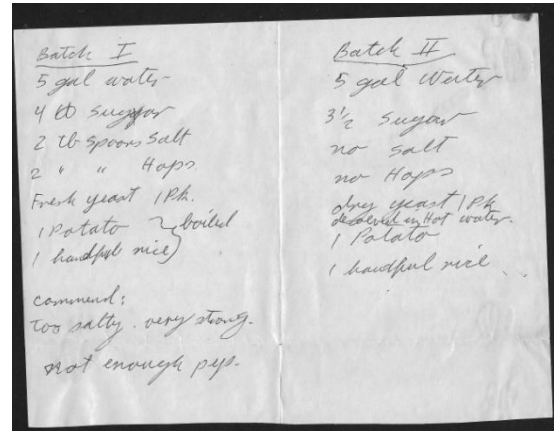 Batch I
5 gal water
4 lb Sugar
2 tb Spoons Salt
2 " " Hops
Fresh yeast 1 Pk.
1 Potato } boiled
1 handful rice
comment:
Too salty. very strong.
not enough pep.
Batch II
5 gal Water
3 1/2 Sugar
no salt
no Hops
dry yeast 1 Pk
desolved in Hot water.
1 Potato
1 handful rice